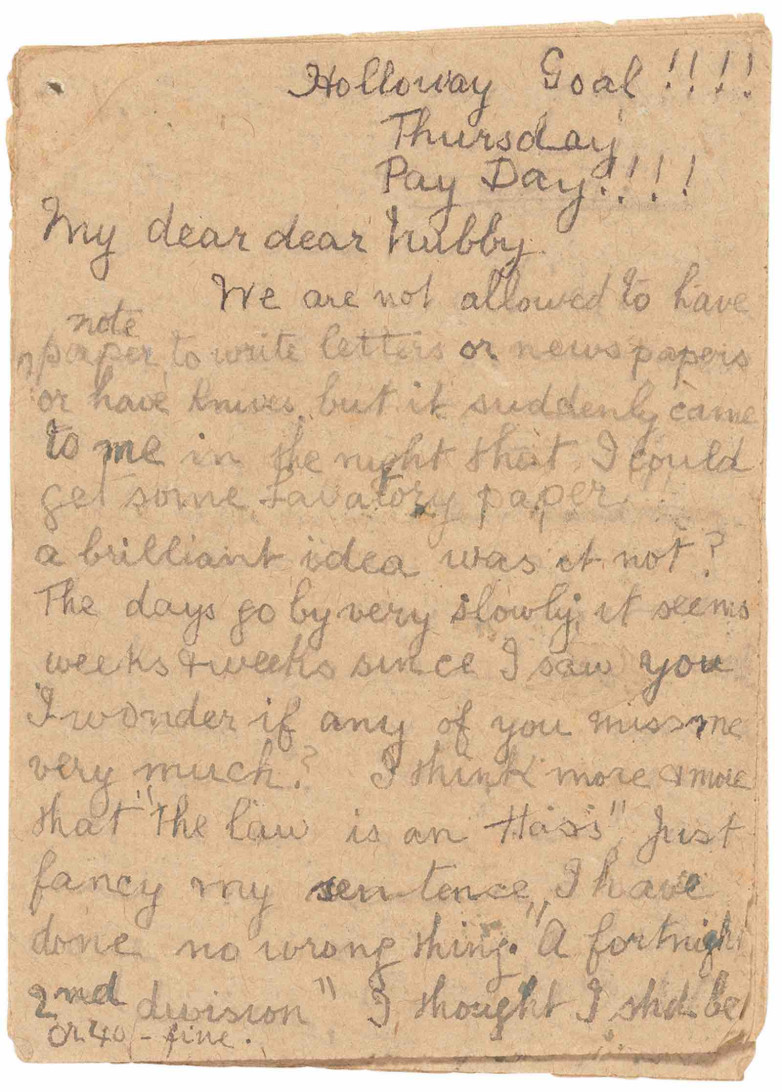 Holloway Goal !!!!
Thursday
Pay Day!!!!
My dear dear Hubby
We are not allowed to have
note
paper, to write letters or newspapers
or have knives, but it suddenly came
to me in the night that I could
get some Lavatory paper !!
a brilliant idea was it not?
The days go by very slowly, it seems
weeks & weeks since I saw you
I wonder if any of you miss me
very much? I think more & more
that "the law is an Hass". Just
fancy my sentence, I have
done no wrong thing. "A fortnight
2nd division" I thought I shd. be
or 40/- fine.